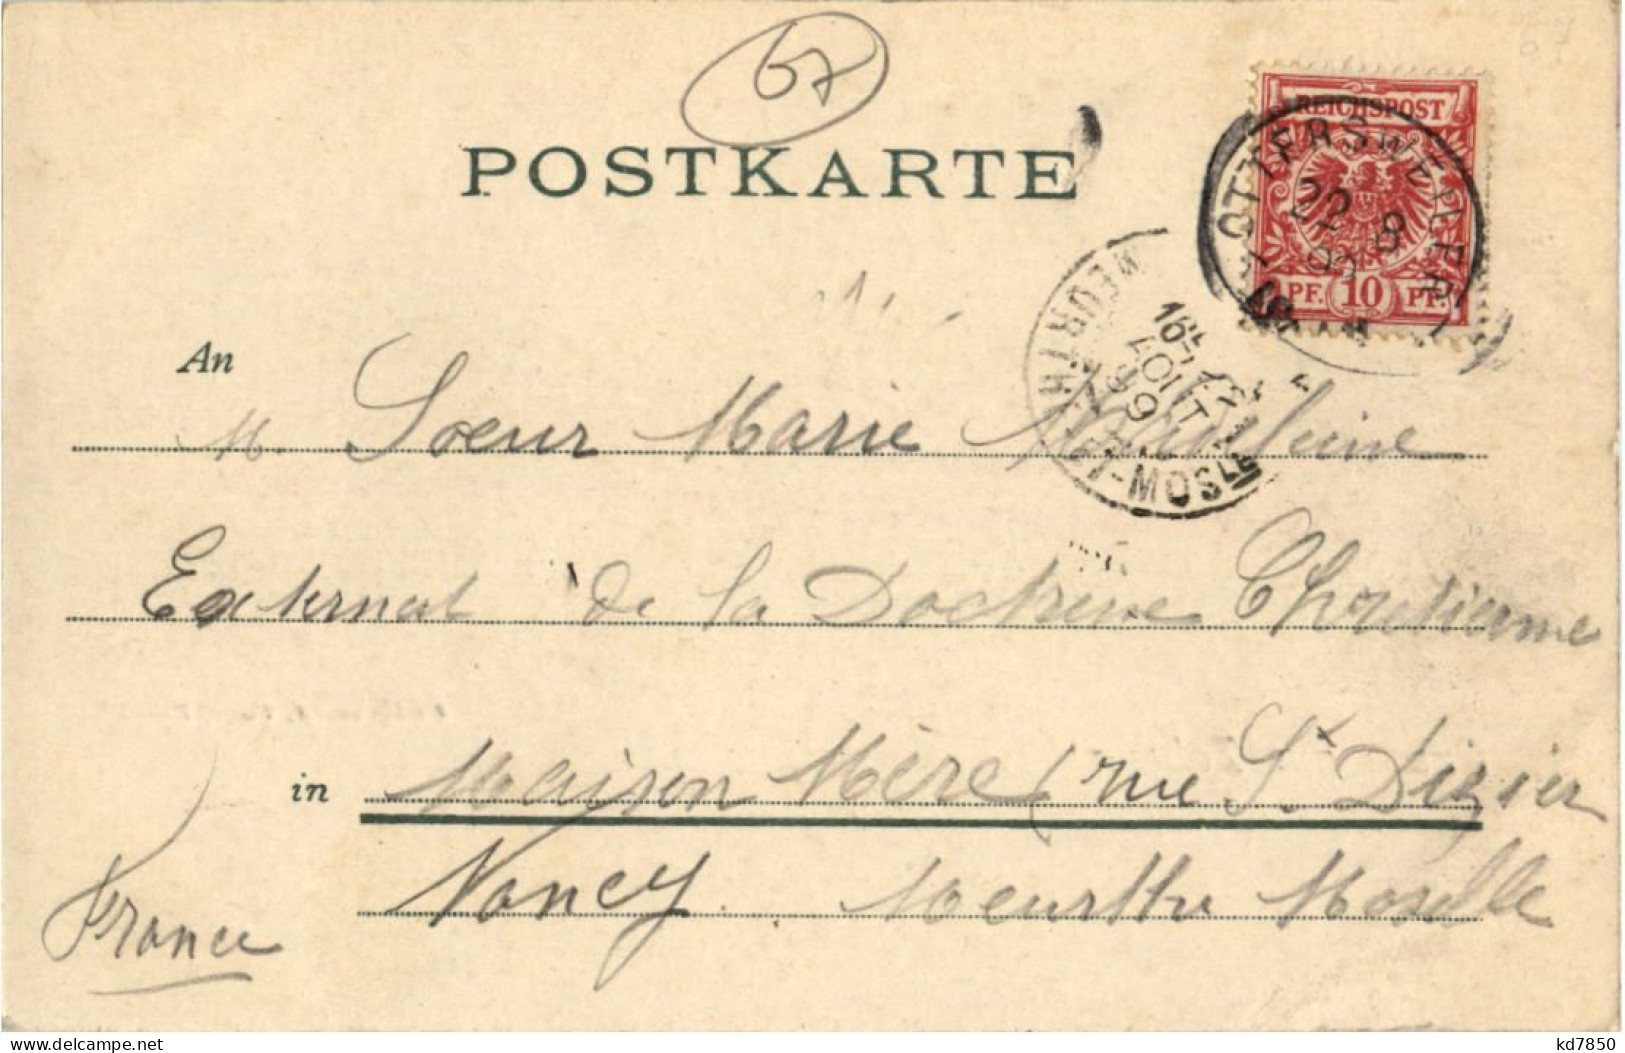 67
POSTKARTE
REICHSPOST
PF. 10 PF.
OTTERSWEILER
22 8
MEURTHE-ET-MOSLLE
AOUT
An
M. Sœur Marie Madeleine
Externat de la Doctrine Chrétienne
in Maison Mère (rue St Dizier
Nancy. Meurthe Moselle
France
delcampe.net
kd7850